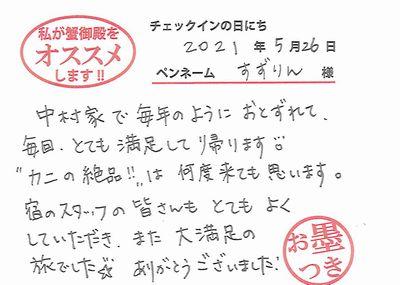 私が蟹御殿を
オススメ
します!!
チェックインの日にち
2021年5月26日
ペンネーム すずりん 様
中村家で毎年のようにおとずれて、
毎回、とても満足して帰ります☺
"カニの絶品!!"は何度来ても思います。
宿のスタッフの皆さんもとてもよく
していただき、また大満足の
旅でした☆ ありがとうございました!
お墨
つき